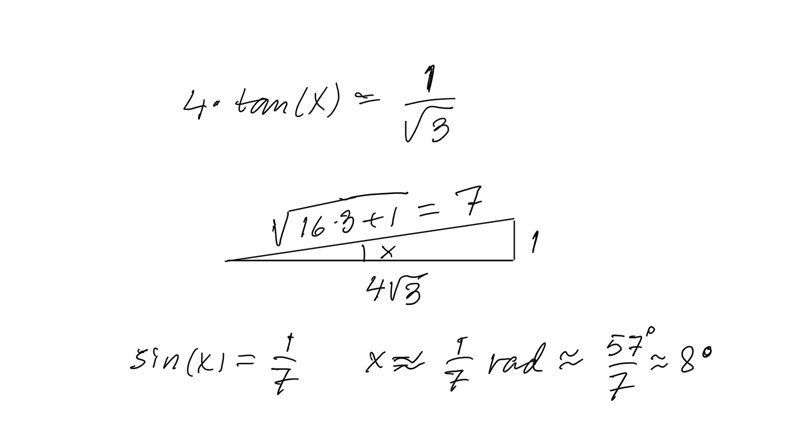 4 · tan(x) = 1/√3
√(16·3+1) = 7
x
1
4√3
sin(x) = 1/7    x ≈ 1/7 rad ≈ 57°/7 ≈ 8°